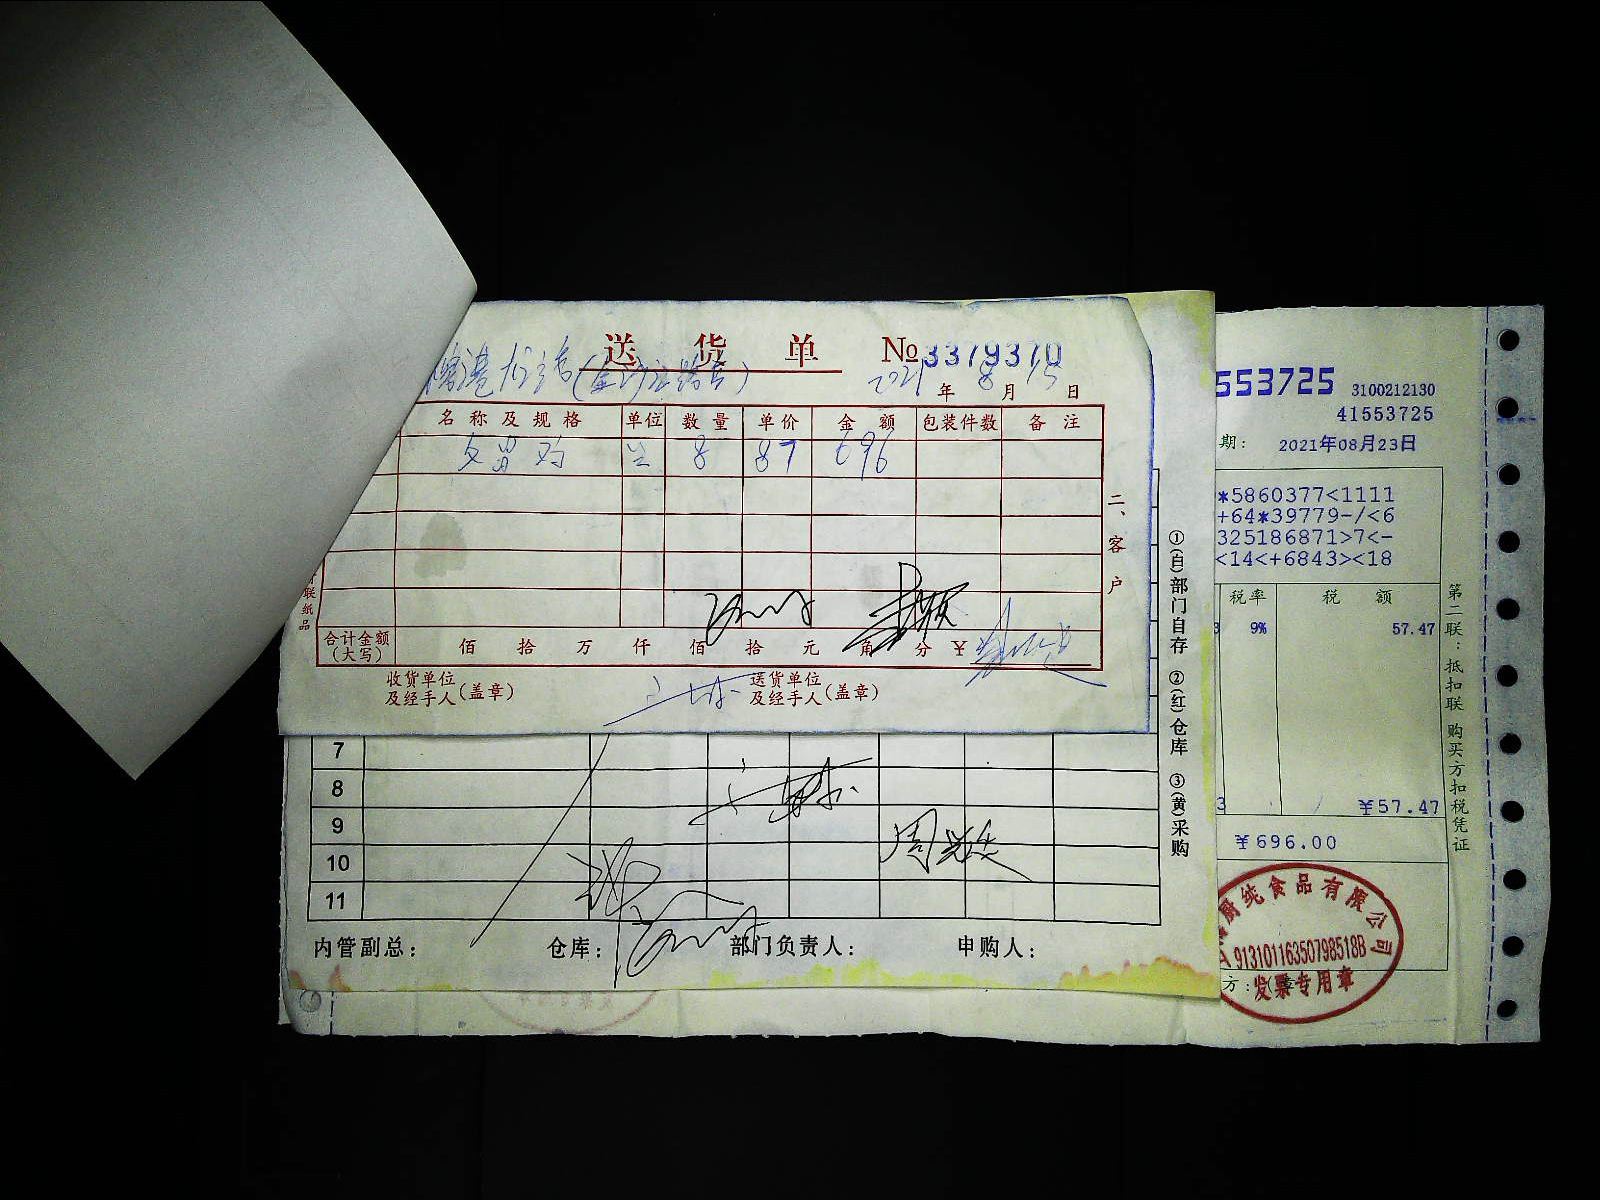 送货单 № 3379370
2021年8月15日
名称及规格 单位 数量 单价 金额 包装件数 备注
文昌鸡 只 8 87 696
二、客户
联纸品
合计金额(大写) 佰 拾 万 仟 佰 拾 元 角 分 ¥
收货单位及经手人(盖章) 送货单位及经手人(盖章)
7
8
9
10
11
内管副总: 仓库: 部门负责人: 申购人:
①(白)部门自存 ②(红)仓库 ③(黄)采购
553725 3100212130
41553725
期: 2021年08月23日
*5860377<1111
+64*39779-/<6
325186871>7<-
<14<+6843><18
税率 税额
9% 57.47
¥57.47
¥696.00
厨纯食品有限公司
91310116350798518B
发票专用章
方:
第二联:抵扣联 购买方扣税凭证